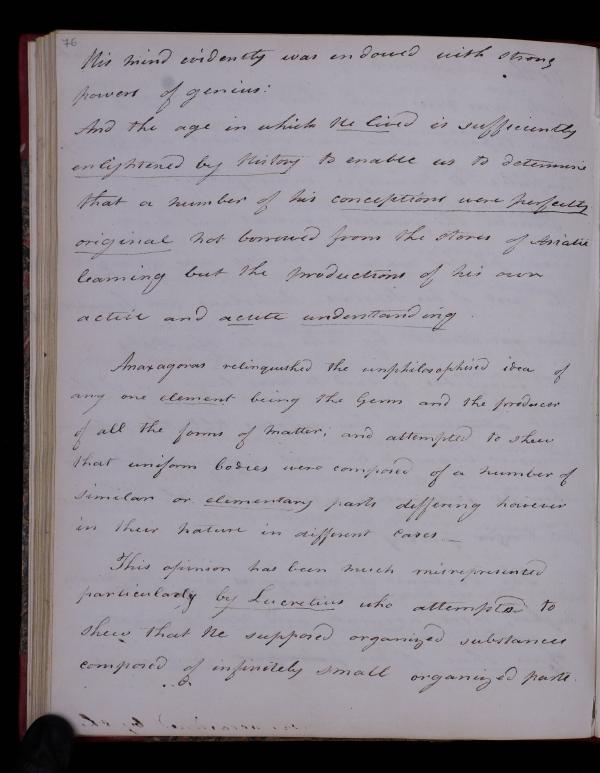 76
His mind evidently was endowed with strong
powers of genius:
And the age in which He lived is sufficiently
enlightened by History to enable us to determine
that a number of his conceptions were perfectly
original not borrowed from the stores of Asiatic
learning but the productions of his own
active and acute understanding.
Anaxagoras relinquished the unphilosophised idea of
any one element being the Germ and the producer
of all the forms of Matter; and attempted to shew
that uniform bodies were composed of a number of
similar or elementary parts differing however
in their nature in different cases _
This opinion has been much misrepresented
particularly by Lucretius who attempted to
shew that He supposed organized substances
composed of infinitely small organized parts.